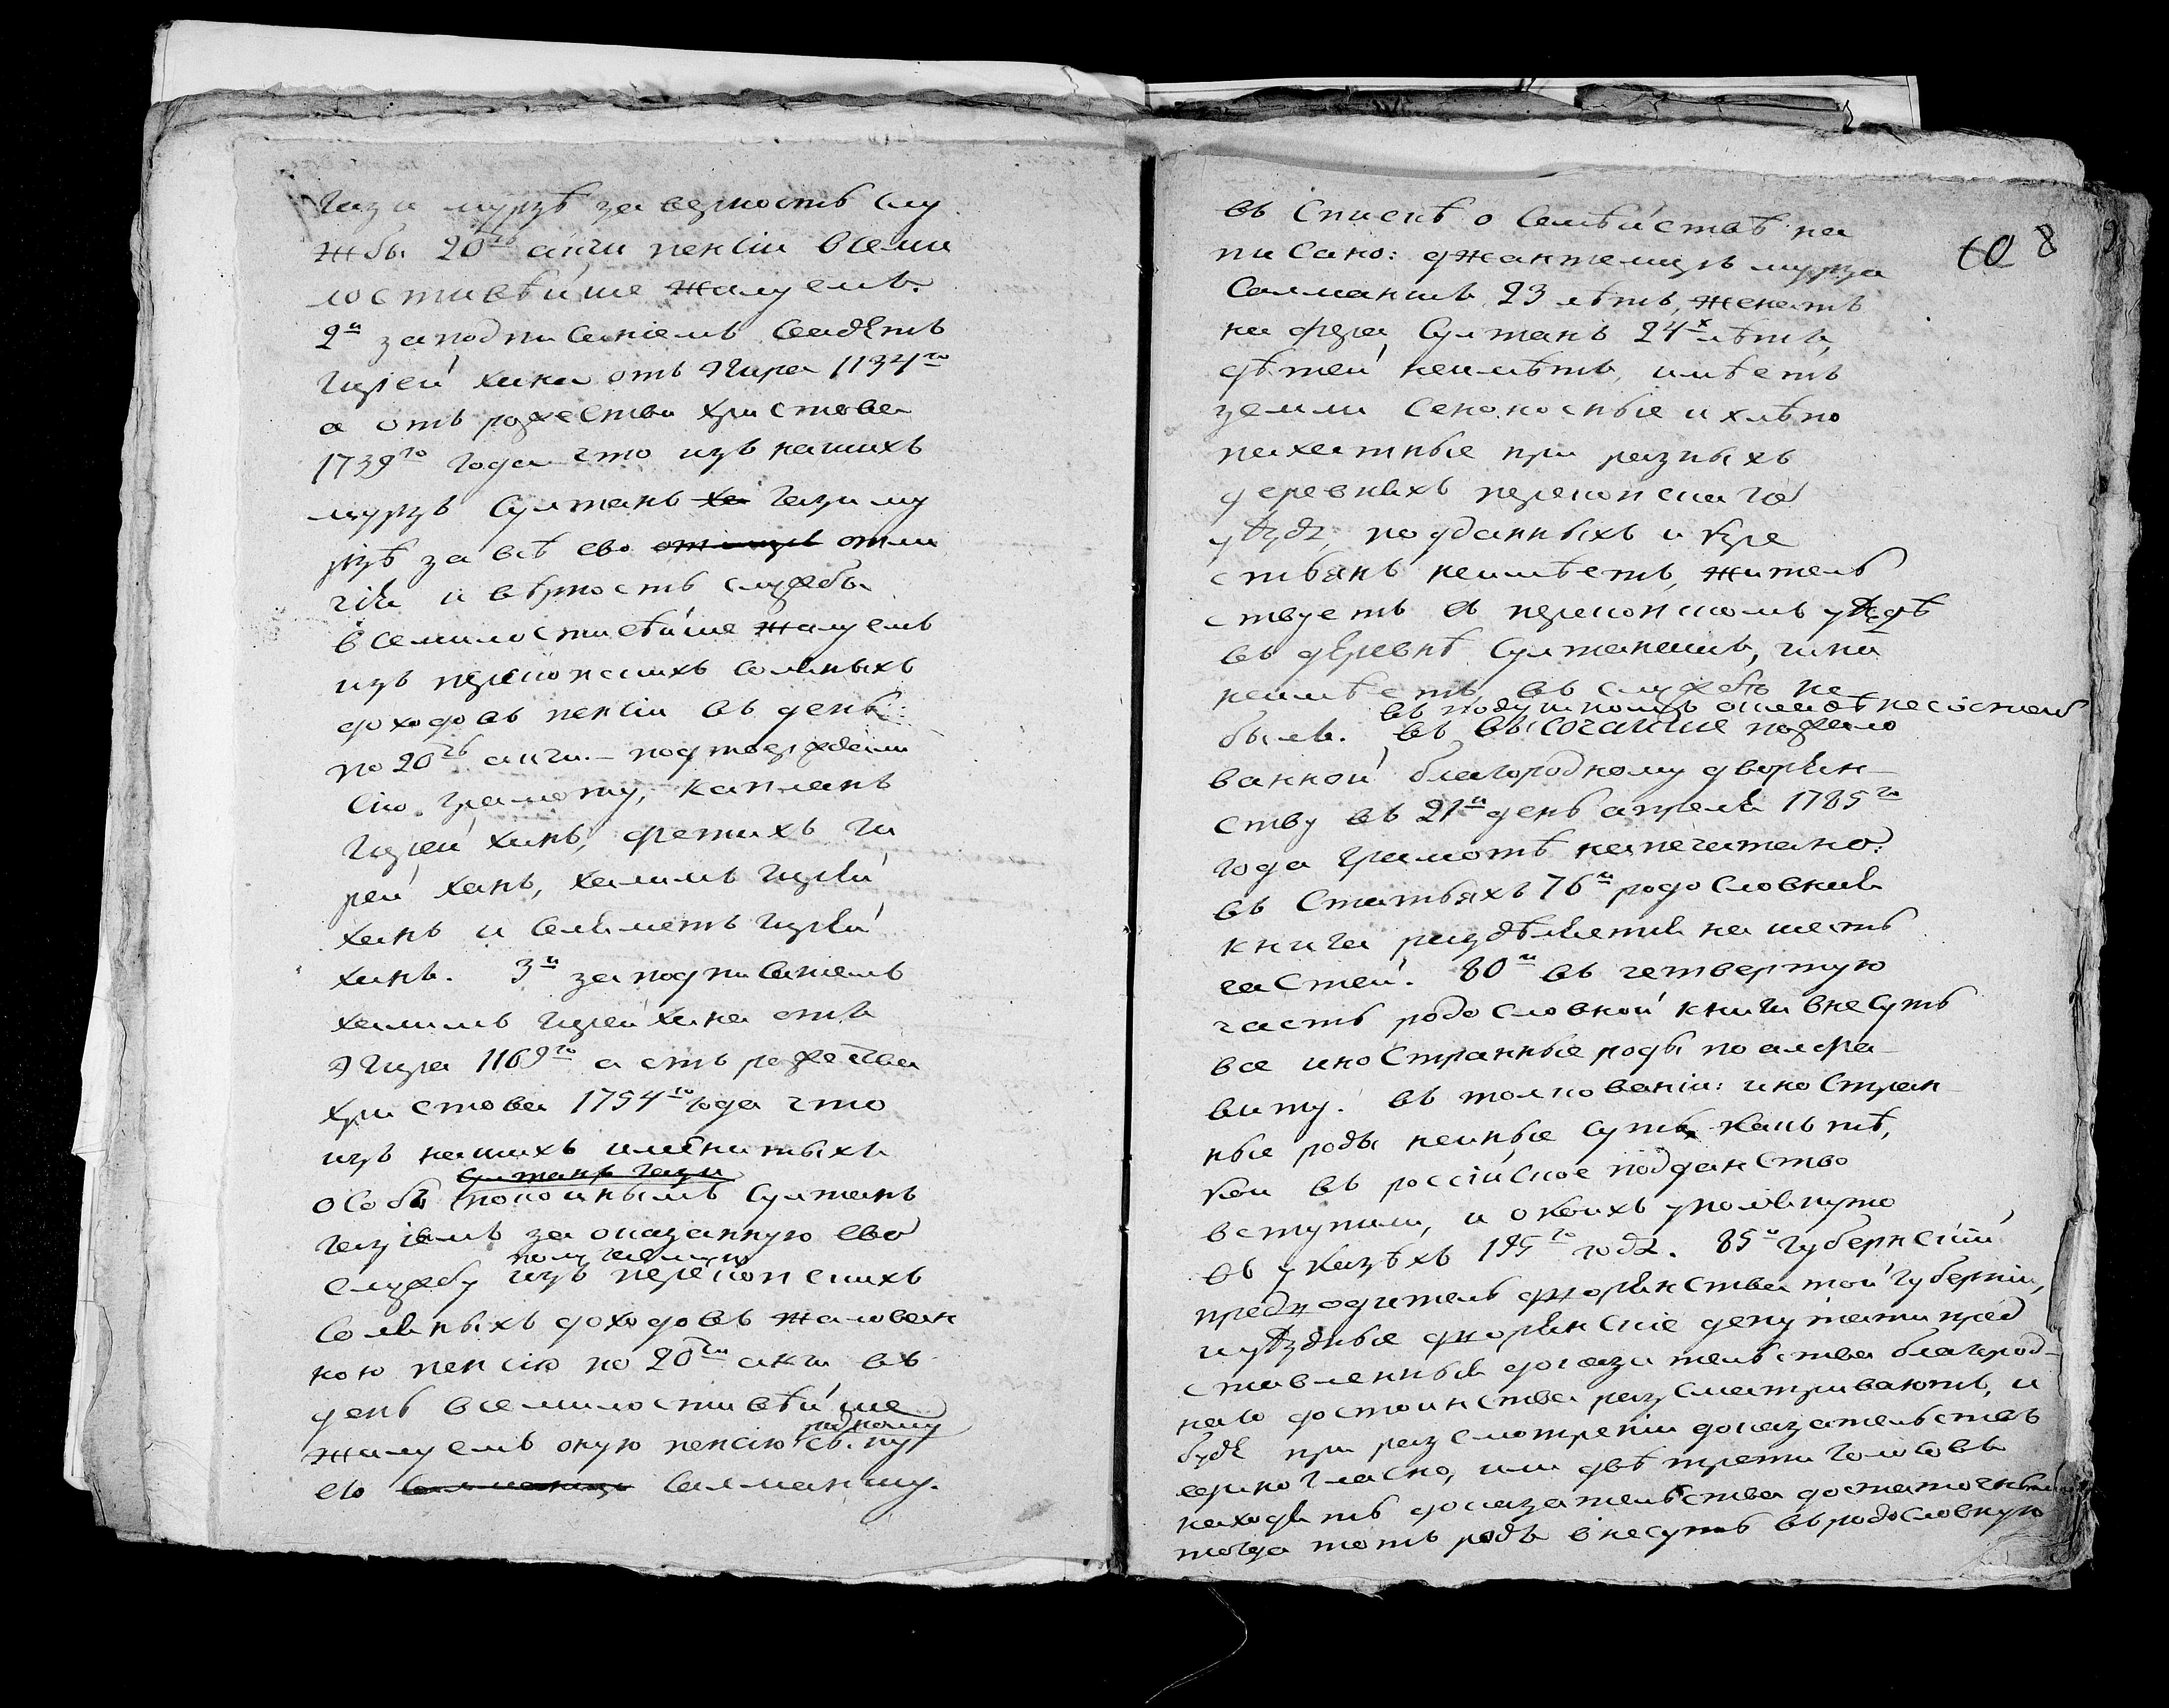 гази мурзѣ за верность слу
жбы 20ть акчи пенсіи всеми
лостивѣйше жалуемъ.
2я за подписаніемъ Саадѣтъ
Гирей хана отъ Эгира 1134го
а отъ рожества христова
1739го года что изъ нашихъ
мурзъ Султанъ ха гази му
рзѣ за всѣ ево отли
чія и вѣрность службы
всемилостивѣйше жалуемъ
изъ перекопскихъ соляныхъ
доходовъ пенсіи въ день
по 20ть акчи. – подтвердили
сію грамоту, капланъ
Гирей ханъ, фетихъ ги
рей ханъ, халимъ гирей
ханъ и селяметъ гирей
ханъ. 3я за подписаніемъ
халимъ гирей хана отъ
Эгира 1169го а отъ рожества
христова 1754го года что
изъ нашихъ имянитыхъ
султанъ гази
особъ покойнымъ Султанъ
газіемъ за оказанную ево
получаемую
службу изъ перекопскихъ
соляныхъ доходовъ жалован
ною пенсію по 20ти акчи въ
день всемилостивѣйше
родному
жалуемъ оную пенсію сыну
ево Салманшу.
въ Спискѣ о Семѣйствѣ на
писано: джантемиръ мурза
Салманшъ 23 лѣтъ, женатъ
на фера Султанъ 24х лѣтъ,
дѣтей неимѣтъ, имѣетъ
земли сенокосные и хлѣбо
пахатные при разныхъ
деревняхъ перекопскаго
уѣзда, подданныхъ и кре
стьянъ неимѣетъ, житель
ствуетъ въ перекопскомъ уѣздѣ
въ дѣревнѣ Султанашъ, чина
неимѣетъ, въ службѣ не
въ подушномъ окладѣ несостоитъ
былъ. въ высочайше пожало
ванной благородному дворян-
ству въ 21й день апреля 1785го
года грамотѣ напечатано:
въ Статьяхъ 76я родословная
книга раздѣляется на шесть
частей. 80я въ четвертую
часть родословной книги внесутъ
все иностранные роды по алфа-
виту. въ толкованіи: иностран-
ные роды неиные суть, какъ тѣ,
кои въ россійское подданство
вступили, и о коихъ упомянуто
въ указѣхъ 195го года. 85я губернскій
предводитель дворянства той губерніи,
и уѣздные дворянскіе депутаты пред
ставленныя доказательства благород-
наго достоинства разсматриваютъ, и
буде при разсмотреніи доказательствъ
единогласно, или двѣ трети голосовъ
находятъ доказательства достаточными
тогда тотъ родъ внесутъ въ родословную
10 8